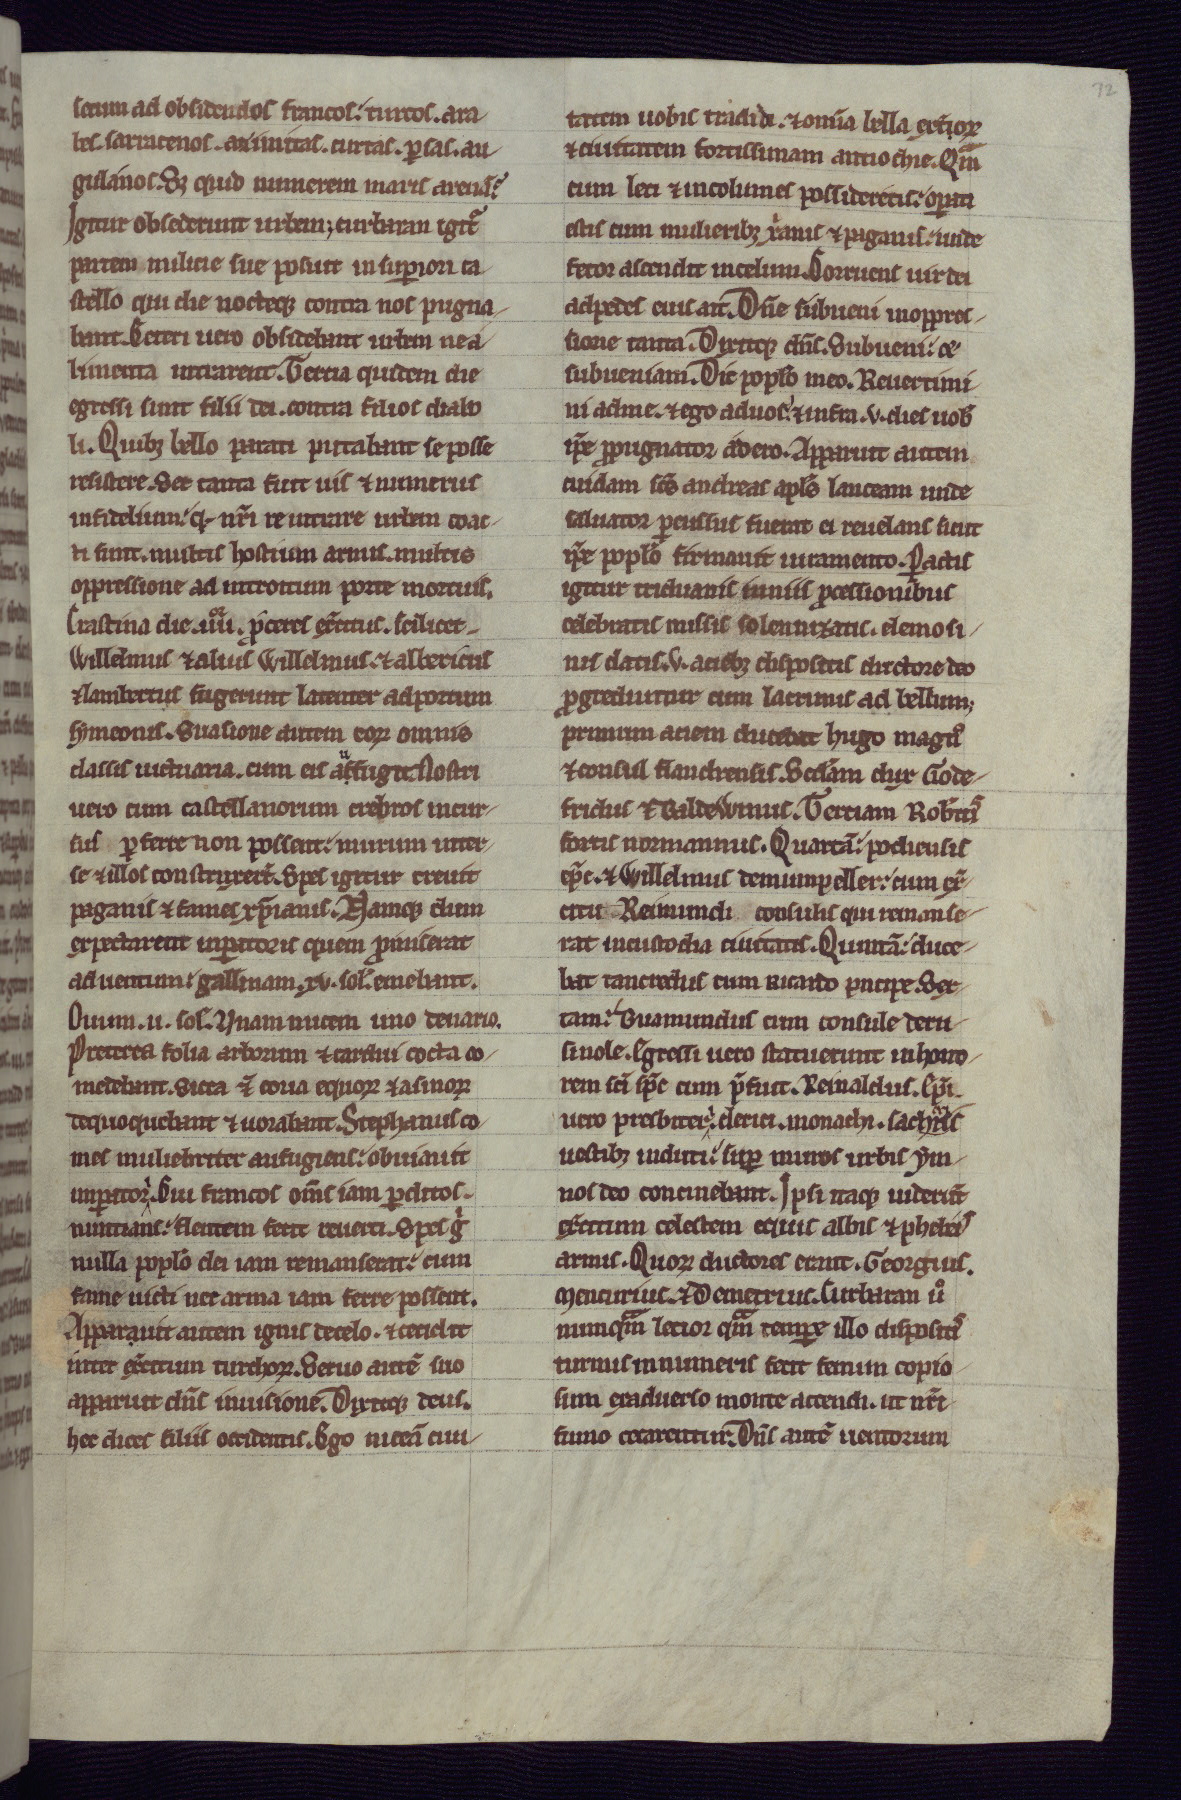 72
secum ad obsidendos francos. turcos. ara-
bes. sarracenos. aximitas. curtas. ꝑsas. au-
gulanos. Sꝫ quid numerem maris arenā?
Igitur obsederunt urbem; curbaran igit̄
partem milicie sue posuit in suꝑiori ca-
stello qui die nocteqꝫ contra nos pugna-
bant. Ceteri uero obsidebant urbem ne a-
limenta intrarent. Tercia quidem die
egressi sunt filii dei. contra filios diabo
li. Quibꝫ bello parati putabant se posse
resistere. Set tanta fuit uis & numerus
infidelium: qͥ nr̄i reintrare urbem coac-
ti sunt. multis hostium armis. multis
oppressione ad introitum porte mortuis.
Crastina die .iiii.or ꝓceres ex̄citus. scilicet.
Willelmus & alius Willelmus. & albericus
& lambertus fugerunt latenter ad portum
symeonis. Suasione autem eoꝝ omnis
classis uictuaria. cum eis aufugit. Nostri
uero cum castellanorum crebros incur-
sus ꝑferre non possent: murum inter
se & illos construxer̄t. Spes igitur creuit
paganis & fames xp̄ianis. Namqꝫ dum
expectarent inꝑatoris quem ꝓmiserat
aduentum: gallinam .xv. sol. emebant.
Ouum .ii. sol. Vnam nucem uno denario.
Preterea folia arborum & cardui cocta co-
medebant. Sicca & coria equoꝝ & asinoꝝ
dequoquebant & uorabant. Stephanus co-
mes muliebriter aufugiens: obuiauit
inꝑatori. Qui francos om̄s iam ꝑditos.
nuntians: flentem fecit reuerti. Spes gͥ
nulla poplo dei iam remanserat: cum
fame uicti nec arma iam ferre possent.
Apparauit autem ignis de celo. & cecidit
inter ex̄citum turchoꝝ. Seruo autē suo
apparuit dn̄s in uisione. Dixitqꝫ deus.
hec dices filiis occidentis. Ego niceā ciui-
tatem uobis tradidi. & omīa bella exterioꝝ
& ciuitatem fortissimam antiochie. Qm̄
cum leti & incolumes possideretis: oꝑati
estis cum mulieribꝫ xͬanis & paganis: unde
fetor ascendit in celum. Corruens uir dei
ad pedes eius ait. Dn̄e subueni in oppres-
sione tanta. Dixitqꝫ dn̄s. Subueni: &
subueniam. Dic poplo meo. Reuertimi
ni ad me. & ego ad uos: & infra .v. dies uob
ip̄e ꝓpugnator adero. Apparuit autem
cuidam scs̄ andreas apls̄ lanceam unde
saluator ꝑcussus fuerat ei reuelans sicut
ip̄e poplo firmauit iuramento. Pactis
igitur triduanis ieiuniis ꝓcessionibus
celebratis missis solennizatis. elemosi-
nis datis .v. aciebꝫ dispositis ductore deo
ꝓgrediuntur cum lacrimis ad bellum;
primum aciem ducebat hugo magn9
& consul flandrensis. Scdam dux Gode-
fridus & Baldewinus. Terciam Robert9
fortis normannus. Quartā: podiensis
ep̄c. & Willelmus de munpeller: cum ex̄-
citu Reimundi consulis qui remanse-
rat in custodia ciuitatis. Quintā: duce-
bat tancredus cum Ricardo principe. Sex-
tam: Buamundus cum consule de ru-
sinole. Egressi uero statuerunt in hono-
rem sci sp̄c cum p̄fuit. Reinaldus. Ep̄i
uero presbiteri. clerici. monachi. sacris
uestibꝫ induti: suꝑ muros urbis ym-
nos deo concinebant. Ipsi itaqꝫ uider̄t
ex̄citum celestem equis albis & phebeis
armis. Quoꝝ ductores erant. Georgius.
Mercurius. & Demetrius. Curbaran u͛o
numqm̄ letior qm̄ tempore illo disposit9
turmis innumeris fecit fenum copio-
sum ex aduerso monte accendi. ut nr̄i
fumo cecarentur. Dn̄s autē uentorum